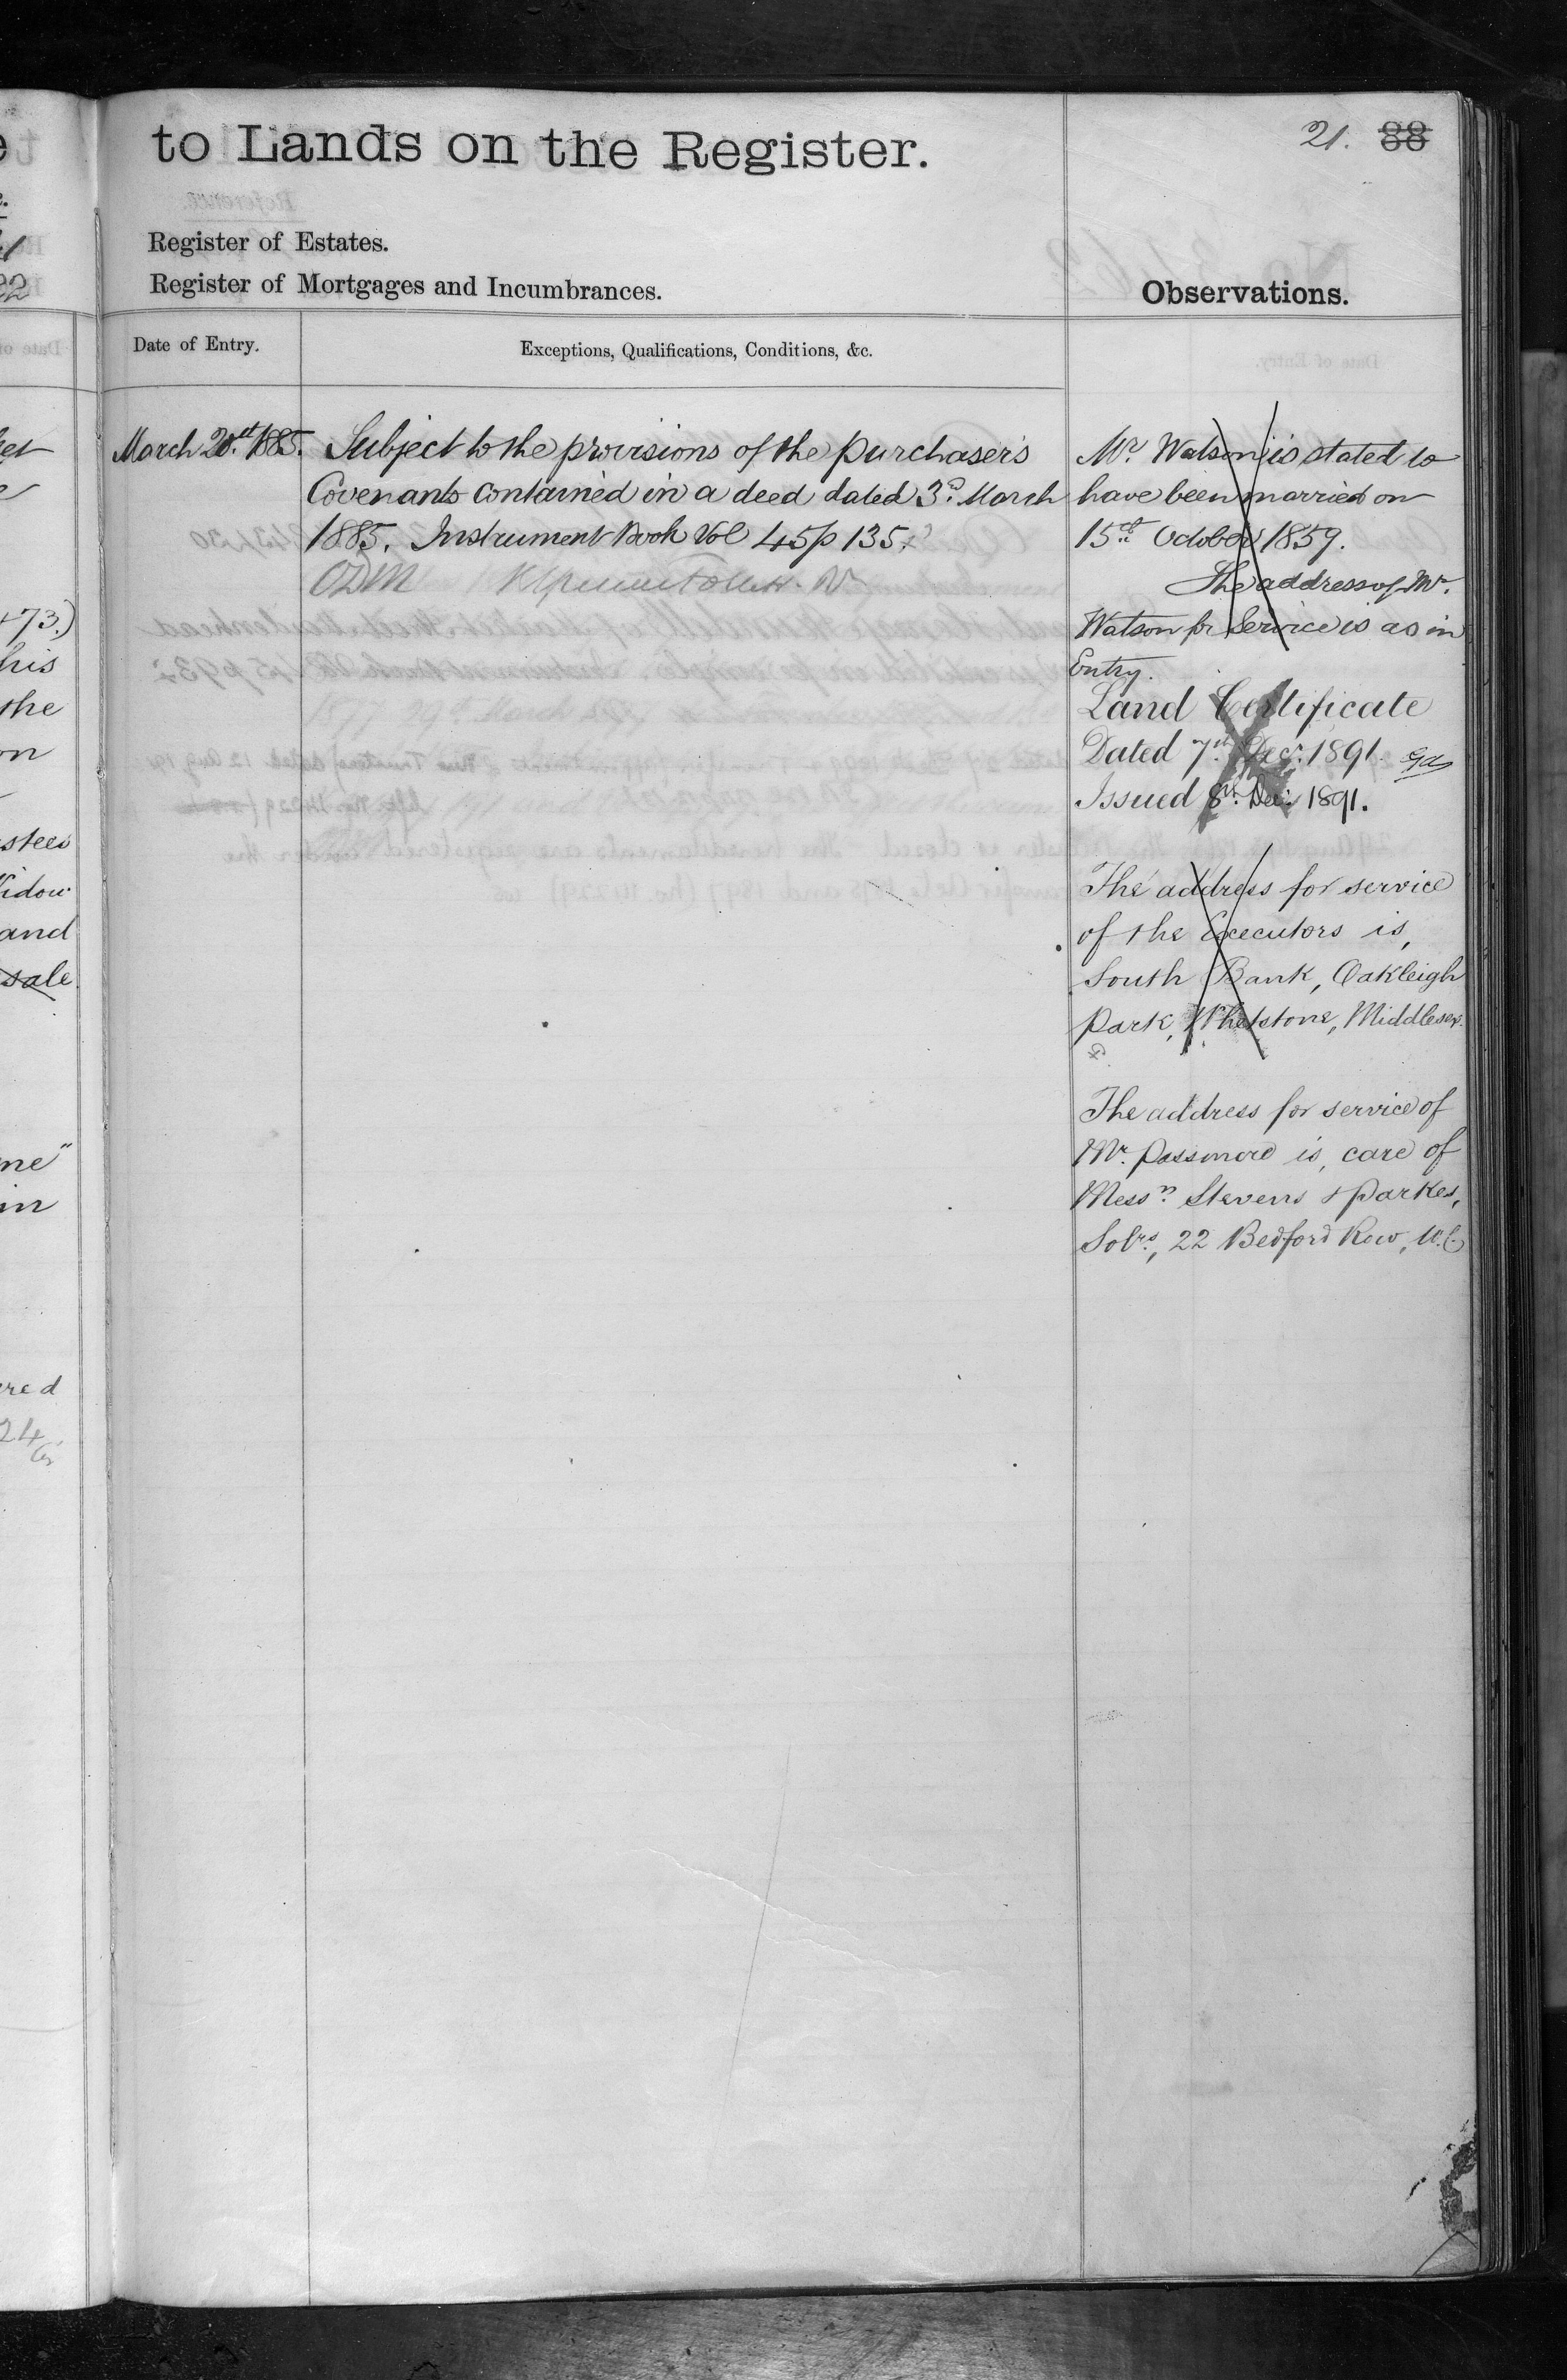 to Lands on the Register.
21. 88
Register of Estates.
Register of Mortgages and Incumbrances.
Observations.
Date of Entry.
Exceptions, Qualifications, Conditions, &c.
March 20st 1885.
Subject to the provisions of the purchaser's
Covenants contained in a deed dated 3d. March
1885. Instrument Book Vol 45 p 135.
ODM
Mr Watson is stated to
have been married on
15th October 1859.
The address of Mr.
Watson for Service is as in
Entry.
Land Certificate
Dated 7th Decr. 1891.
Issued 8th Dec. 1891.
The address for service
of the Executors is,
South Bank, Oakleigh
Park, Whetstone, Middlesex.
The address for service of
Mr. Passmore is, care of
Messrs. Stevens & Parkes,
Solrs., 22 Bedford Row, W.C.
+73.)
his
the
on
stees
Widow
and
sale
me"
in
ered
24